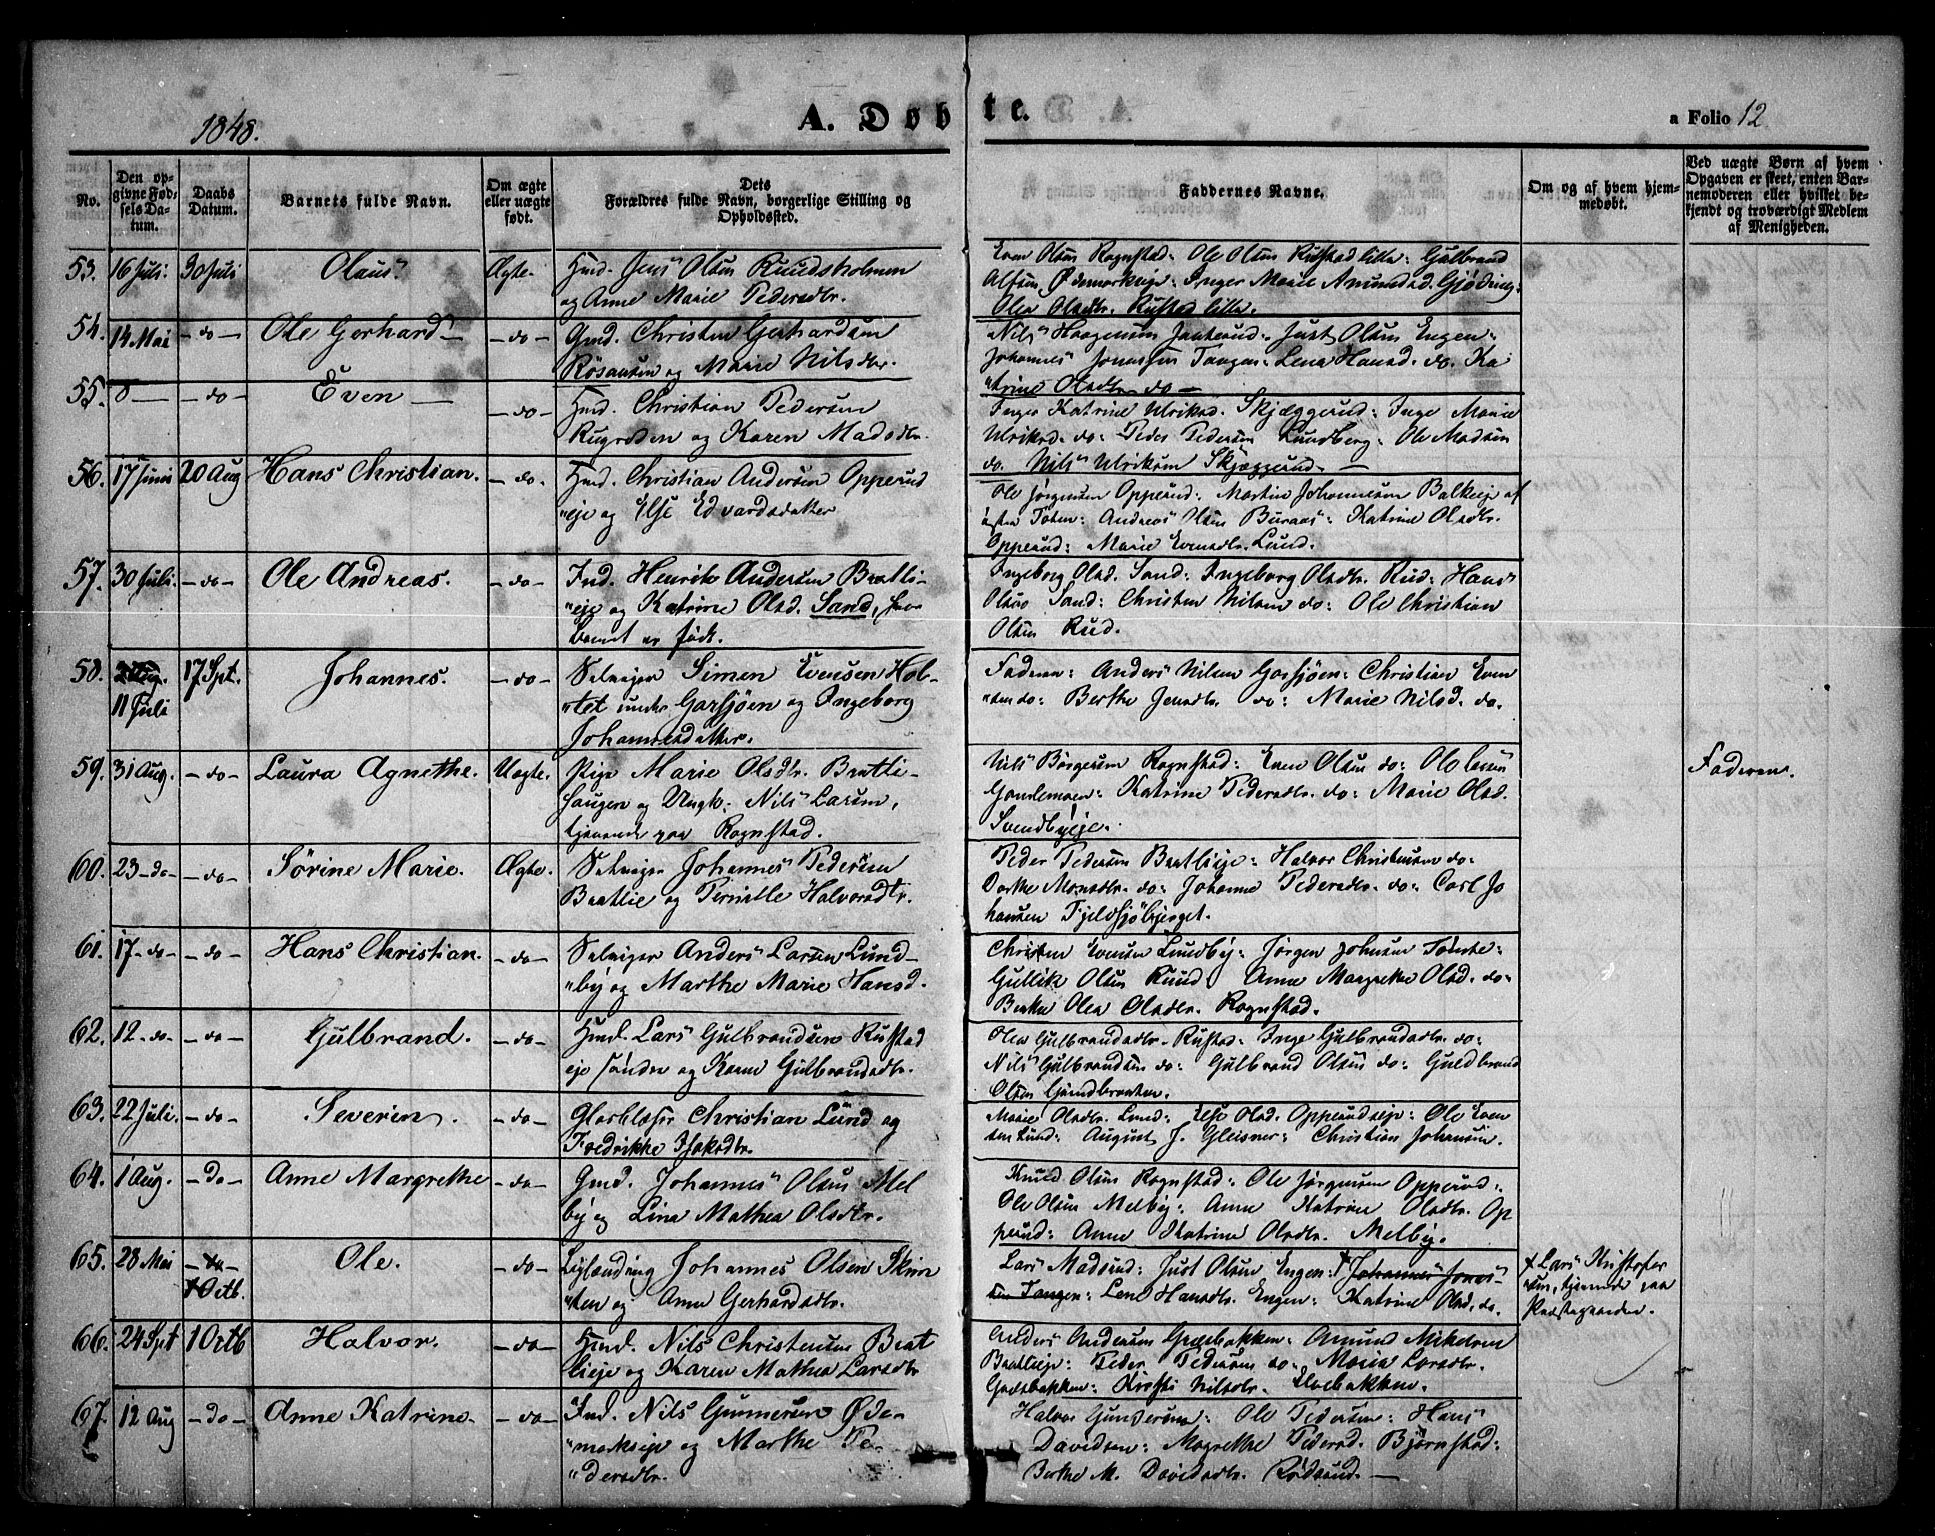 1848.
A. Døbte.
a Folio 12.
No.
Den opgivne Fødsels Datum.
Daabs Datum.
Barnets fulde Navn.
Om ægte eller uægte født.
Dets Forældres fulde Navn, borgerlige Stilling og Opholdssted.
Faddernes Navne.
Om og af hvem hjemmedøbt.
Ved uægte Børn af hvem Opgaven er skeet, enten Barnemoderen eller hvilket bekjendt og troværdigt Medlem af Menigheden.
53. 16 Juli. 30 Juli Olaus Ægte. Hmd. Jens Olsen Ruudsholmen
og Anne Marie Pedersdtr.
Even Olsen Rognstad: Ole Olsen Rustad lille: Gulbrand
Olsen Ødemarkseje: Inger Marie Amundsd. Gjøding:
Olea Olsdtr. Rustad lille.
54. 14 Mai - do - Ole Gerhard - - do - Gmd. Christen Gerhardsen
Rösausen og Marie Nilsdtr.
Nils Haagensen: Just Olsen Engen:
Johannes Jonassen Tangen: Lena Hansd. do. Ka
trine Olsdtr. do -
55. 8 - - do - Even - - do - Hmd. Christian Pedersen
og Karen Madsdtr.
Inger Katrine Ulriksd. Skjæggerud: Inge Marie
Ulriksd. do: Peder Pedersen Lundberg: Ole Madsen
do. Nils Ulriksen Skjæggerud. -
56. 17 Juni 20 Aug Hans Christian. - do - Hmd. Christian Andersen Opperud
"eje og Else Edvardsdatter
Ole Jørgensen Opperud: Martin Johannesen Balkeeje af
østre Toten: Andreas Olsen Buraas: Katrine Olsdtr.
Opperud: Marie Evensdtr. Lund.
57. 30 Juli. - do - Ole Andreas. - do - Ind. Henrik Andersen Bratli-
"eje og Katrine Olsd. Sand, hvor
barnet er født.
Ingeborg Olsd. Sand: Ingeborg Olsdtr. Rud: Hans
Olsen Sand: Christen Nilsen do: Ole Christian
Olsen Rud.
58. 11 Juli 17 Sept. Johannes. - do - Selvejer Simen Evensen Hol-
"tet under Garsjøen og Ingeborg
Johannesdatter.
Faderen: Anders Nilsen Garsjøen: Christian Even
"sen do: Berthe Jensdtr. do: Marie Nilsd. do.
59. 31 Aug. - do - Laura Agnethe. Uægte. Pige Marie Olsdtr. Bratli-
haugen og Ungk. Nils Larsen,
tjenende paa Rognstad.
Nils Børgersen Rognstad: Even Olsen do: Ole
Gaardemoen: Katrine Pedersdtr. do: Marie Olsd.
Svendbyeje.
Faderen.
60. 23 - do - - do - Sörine Marie. Ægte. Selvejer Johannes Pedersen
Bratlie og Pernille Halvorsdtr.
Peder Pedersen Bratlieje: Halvor Christensen do:
Dorthe Monsdtr. do: Johanne Pedersdtr. do: Carl Jo
hansen Fjeldsjöbjerget.
61. 17 - do - - do - Hans Christian. - do - Selvejer Anders Larsen Lund-
"by og Marthe Marie Hansd.
Christen Evensen Lundby: Jörgen Johnsen Tömte:
Gullik Olsen Ruud: Anne Margrethe Olsd. do:
Berthe Olea Olsdtr. Rognstad.
62. 12 - do - - do - Gulbrand. - do - Hmd. Lars Gulbrandsen Rustad
eje søndre og Karen Gulbrandsdtr.
Olea Gulbrandsdtr. Rustad: Inge Gulbrandsdtr. do:
Nils Gulbrandsen do: Gulbrand Olsen do: Guldbrand
Olsen
63. 22 Juli. - do - Severin. - do - Glasblæser Christian Lund og
Fredrikke Isaksdtr.
Marie Olsdtr. Lund: Else Olsd. Opperudeje: Ole Even
sen Lund: August J. Gleisner: Christian Johansen.
64. 1 Aug. - do - Anne Margrethe - do - Gmd. Johannes Olsen Mel
by og Lina Mathea Olsdtr.
Knud Olsen Rognstad: Ole Jørgensen Opperud:
Ole Olsen Melby: Anne Katrine Olsdtr. Op
perud: Anne Katrine Olsdtr. Melby.
65. 28 Mai - do - 1 Octb. Ole. - do - Johannes Olsen Skjær
"ten og Anne Gerhardsdtr.
Lars Madsen: Just Olsen Engen: + Johannes Jonas-
sen Tangen: Lene Hansdtr. Engen: Katrine Olsd. do.
+ Lars Kristofer
sen, tjenende paa
Præstegaarden.
66. 24 Spt 1 Octb Halvor. - do - Hmd. Nils Christensen Brat
lieje og Karen Mathea Larsdtr
Anders Andersen Græsbakken: Amund Mikelsen
Bratlieje: Peder Pedersen do: Maria Larsdtr.
Græsbakken: Kirsti Nilsdtr.
67. 12 Aug - do - Anne Katrine - do - Ind. Nils Gunnersen Øde-
"markseje og Marthe Pe-
"dersdtr.
Halvor Gundersen: Ole Pedersen: Hans
Davidsen: Magrethe Pedersd. Bjørnstad:
Berthe M. Davidsdtr. Rødsrud. -